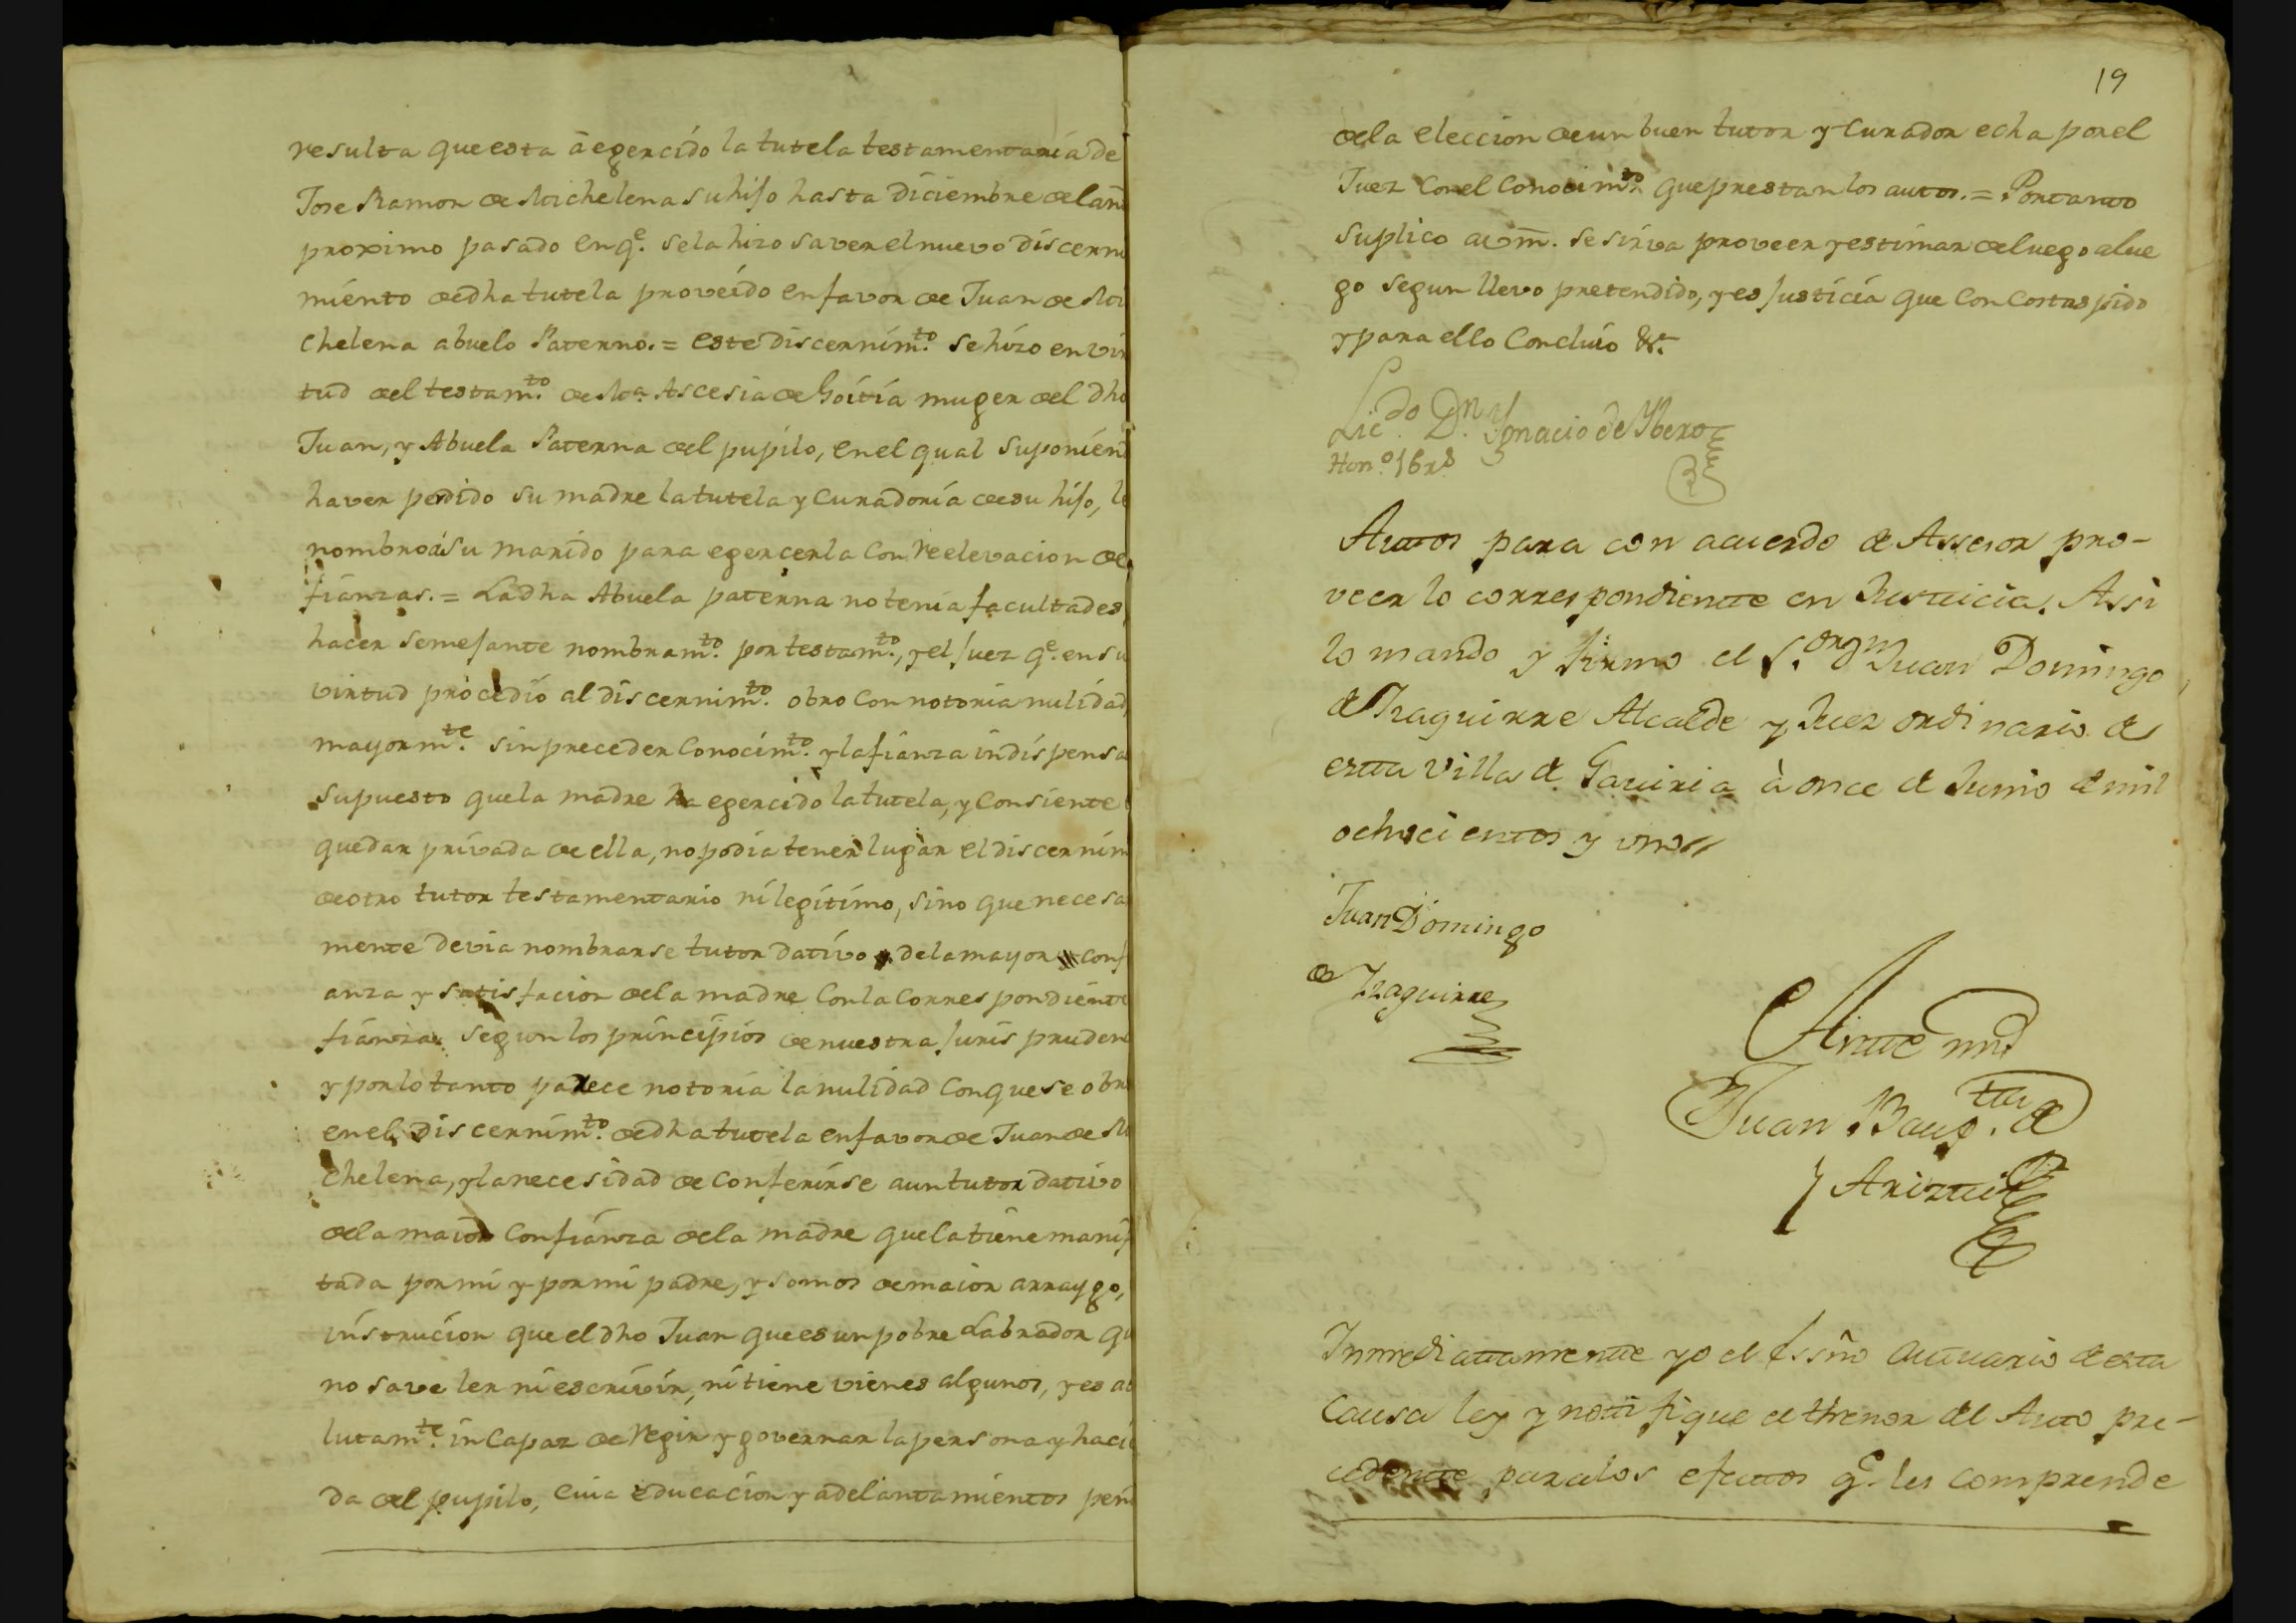 resulta que esta à egercido la tutela testamentaria de
Jose Ramon de Michelena su hijo hasta Diciembre del añ
proximo pasado en q.e se la hizo saver el nuevo discerni
miento de dha tutela proveido en favor de Juan de Mi
chelena abuelo Paterno. = este discernim.to se hizo en vir
tud del testam.to de M.a Ascesia de Goitia muger del dho
Juan, y Abuela Paterna del pupilo, en el qual suponien
haver perdido su madre la tutela y curadoria de su hijo, le
nombro à su marido para egercerla con reelevacion de
fianzas. = La dha Abuela paterna no tenia facultades,
hacer semejante nombram.to por testam.to, y el juez q.e en su
virtud procedió al discernim.to obro con notoria nulidad,
mayorm.te sin preceder conocim.to y la fianza indispensa
supuesto que la madre ha egercido la tutela, y consiente
quedar privada de ella, no podia tener lugar el discernim
de otro tutor testamentario ni legitimo, sino que necesa
mente devia nombrarse tutor dativo de la mayor conf
anza y satisfacion de la madre con la correspondiente
fianza segun los principios de nuestra jurispruden
y por lo tanto parece notoria la nulidad con que se obr
en el discernim.to de dha tutela en favor de Juan de Mi
chelena, y la necesidad de conferirse a un tutor dativo
de la maior confianza de la madre que la tiene manif
tada por mi y por mi padre, y somos de maior arraygo,
instrucion que el dho Juan que es un pobre Labrador qu
no save ler ni escrivir, ni tiene vienes algunos, y es ab
lutam.te incapaz de regir y governar la persona y haci
da del pupilo, cuia educacion y adelantamientos pen
19
de la eleccion de un buen tutor y curador echa por el
Juez con el conocim.to que prestan los autos. = Por tanto
suplico a vm. se sirva proveer y estimar de luego a lue
go segun llevo pretendido, y es justicia que con costas pido
y para ello concluio &.a
Lic.do D.n Ygnacio de Ybero
Hon.o 16 r.s
Autos para con acuerdo de Assesor pro-
veer lo correspondiente en Justicia. Assi
lo mando y firmo el S.or d.n Juan Domingo
de Yzaguirre Alcalde y Juez ordinario de
esta Villa de Gaviria à once de Junio de mil
ochocientos y uno//
Juan Domingo
de Yzaguirre
Ante mi
Juan Baup.tta de
Ariztii
Inmediatamente yo el Essño actuario de esta
causa ley y notifique el thenor del Auto pre-
cedente para los efectos q.e les comprende